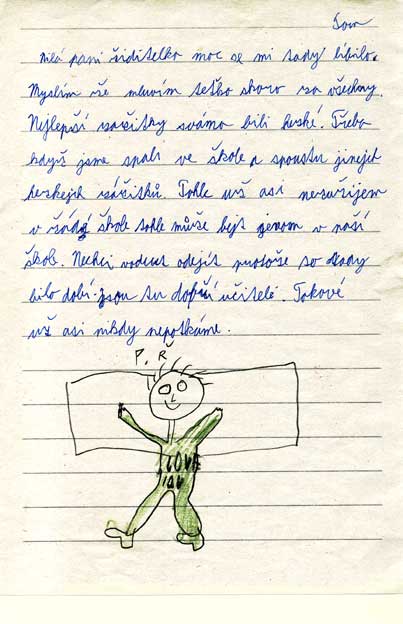 Tom
milá paní řiditelko moc se mi tady líbilo.
Myslím že mluvím teťko skoro za všechny.
Nejlepší zážitky svámo bili heské. Třeba
když jsme spali ve škole a spoustu jinejch
heskejch zážitků. Tohle už asi nezažijem
v žádný škole tohle může bejt jenom v naší
škole. Nechci vodcut odejít protože so tady
bilo dobí. jsou tu dobří učitelé. Takové
už asi nikdy nepotkáme.
P. Ř
LOVE